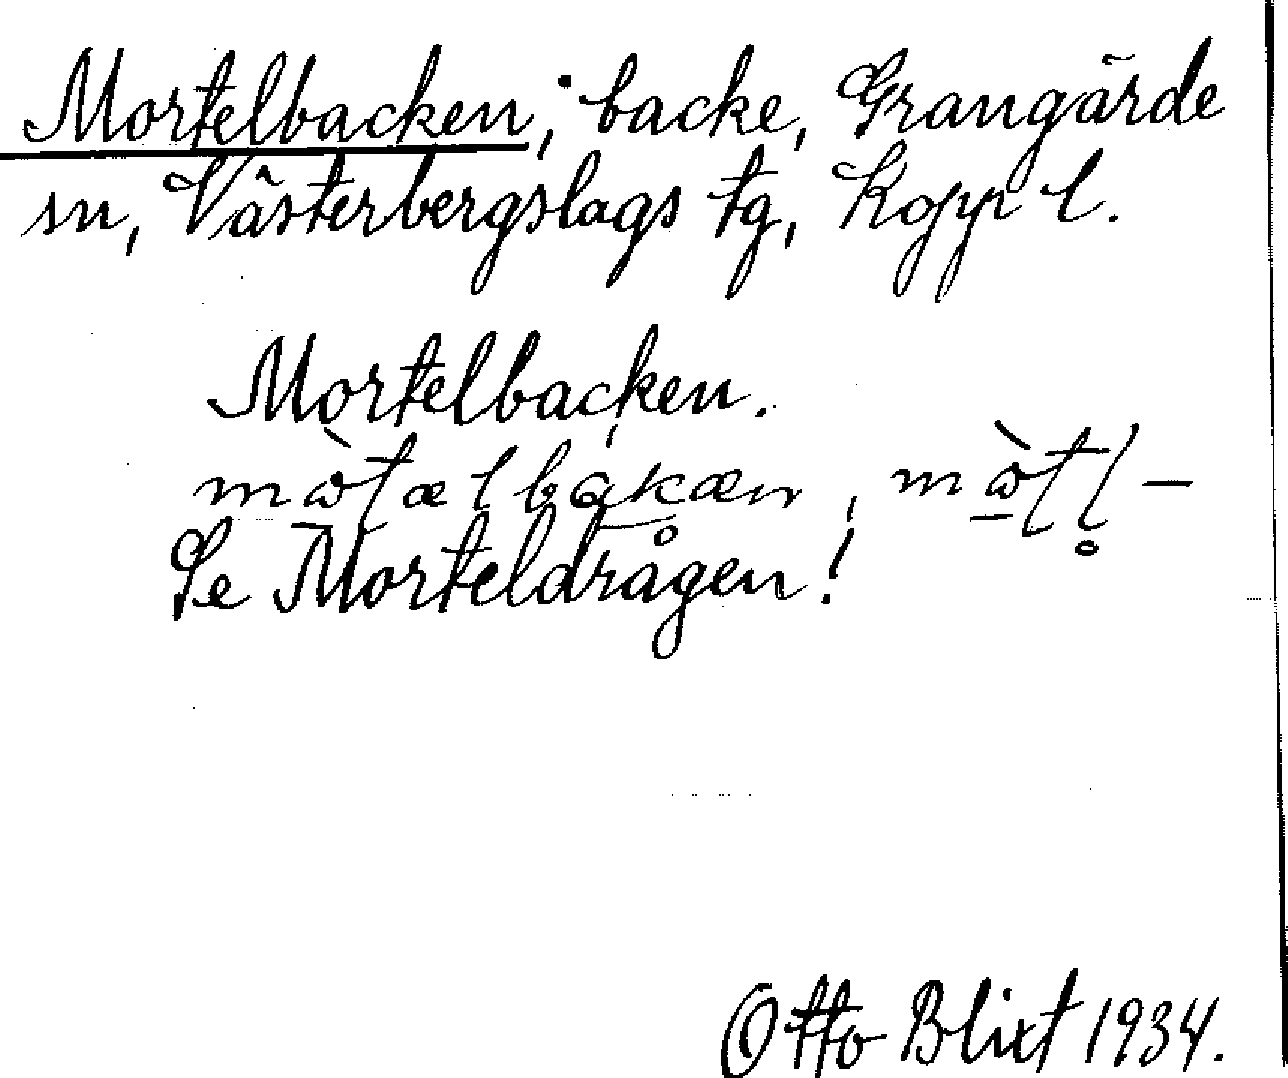 Mortelbacken, backe, Grangärde
sn, Västerbergslags tg, Kopp l.
Mortelbacken.
Se Morteldrågen!
Otto Blixt 1934.